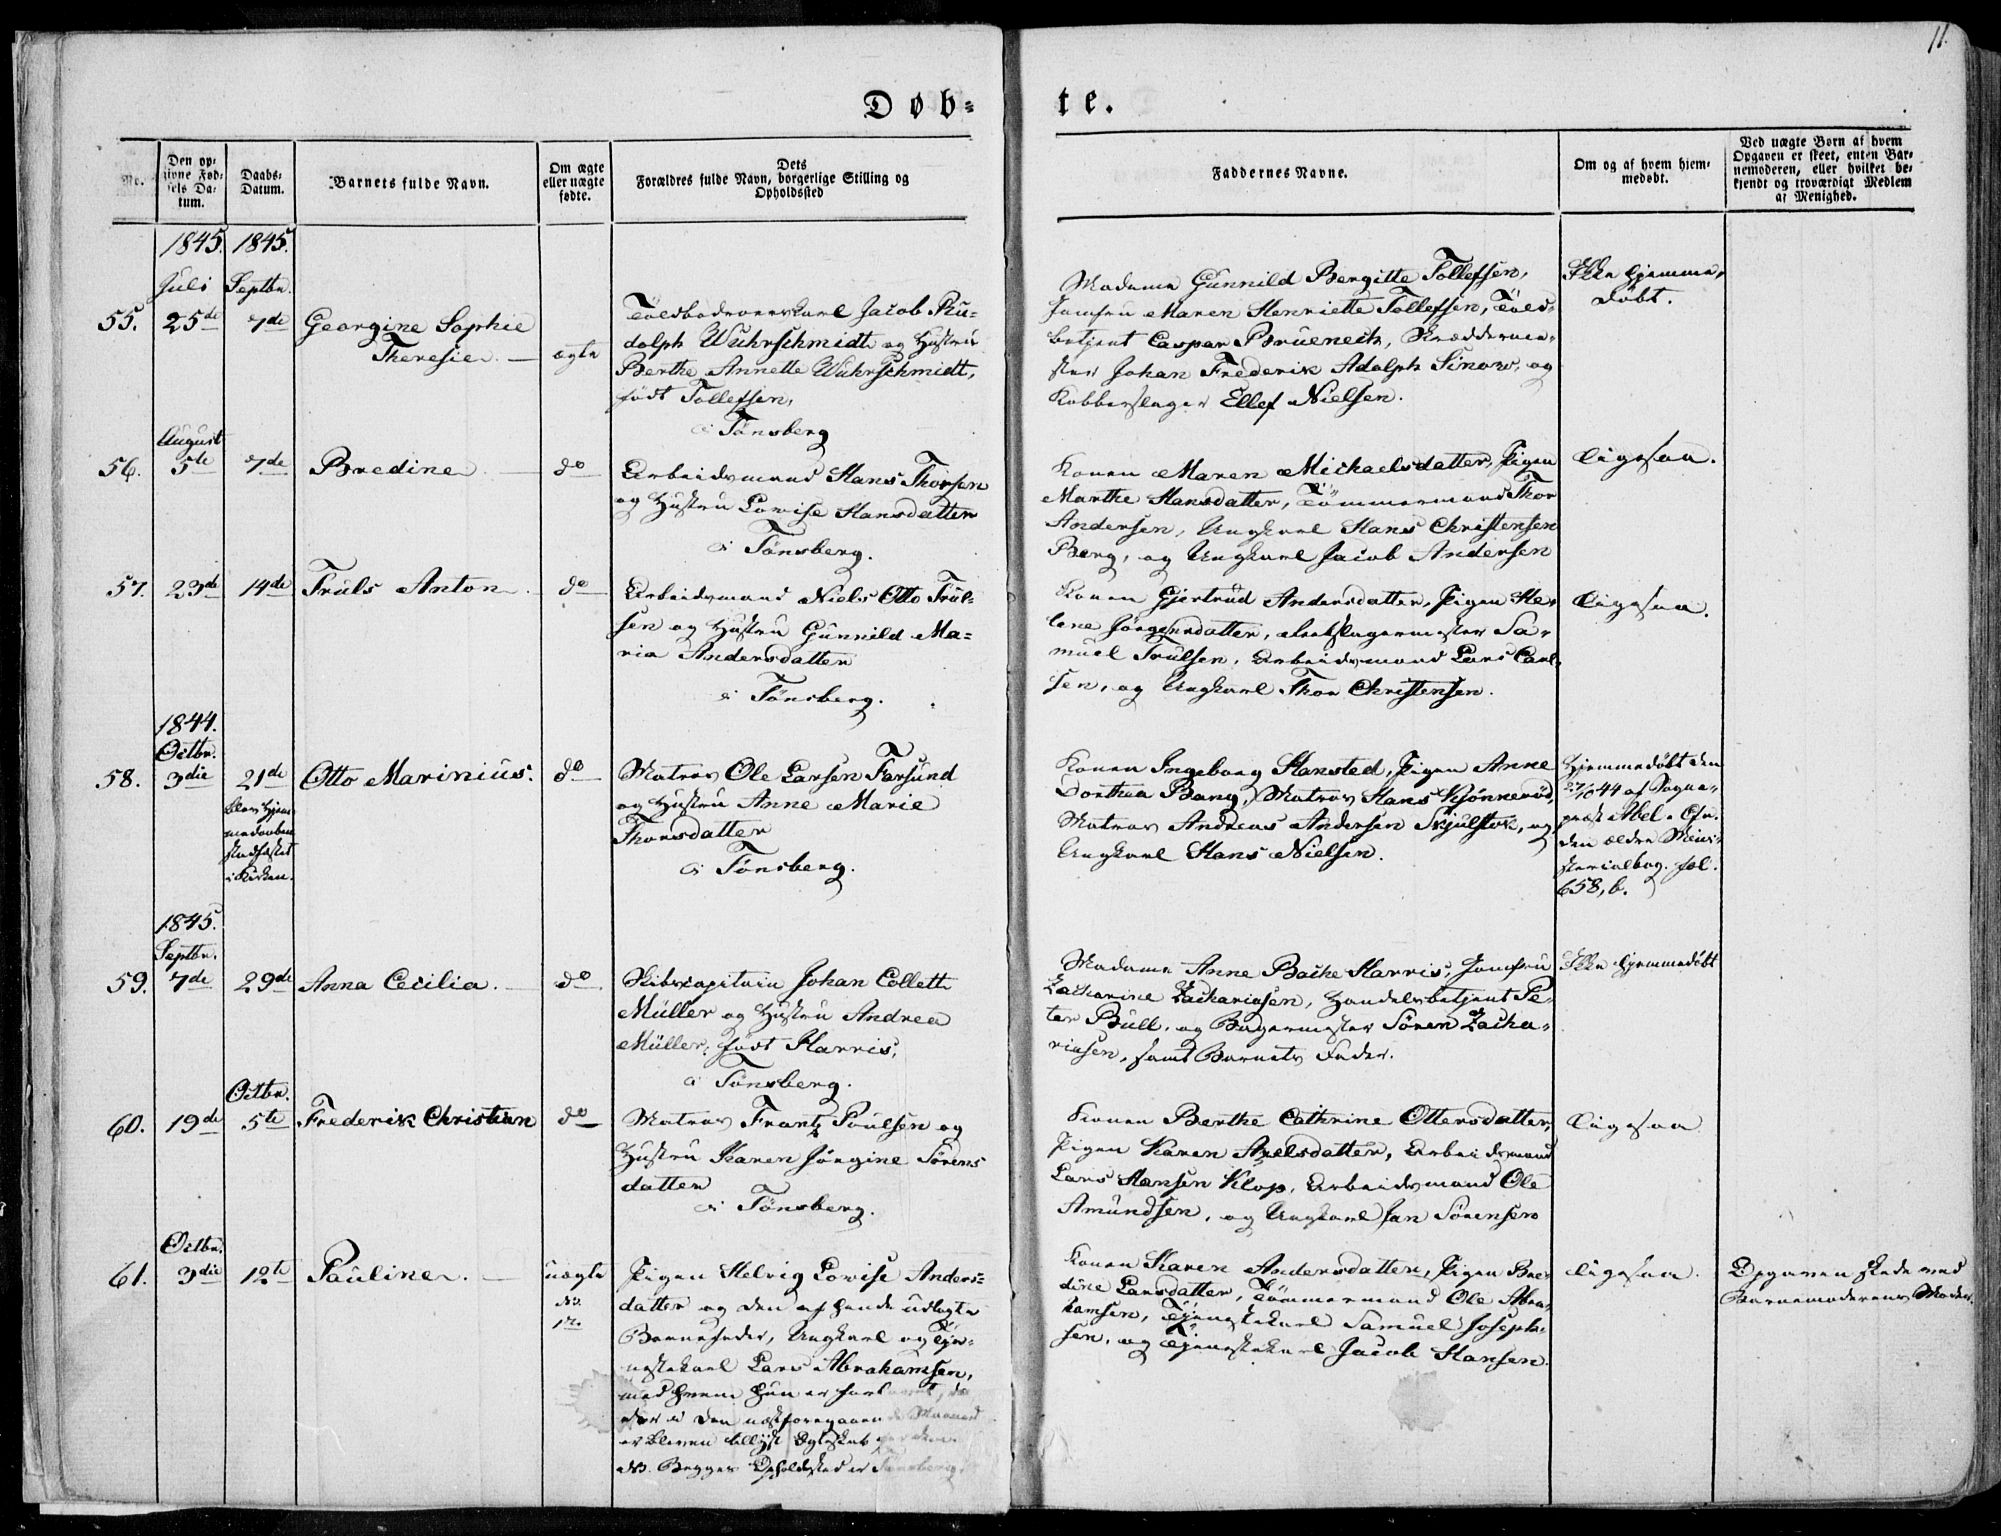 11.
Døb-
te.
No.
Den op-
givne Fød-
sels Da-
tum.
Daabs-
Datum.
Barnets fulde Navn.
Om ægte
eller uægte
fødte.
Dets
Forældres fulde Navn, borgerlige Stilling og
Opholdssted
Faddernes Navne.
Om og af hvem hjem-
medøbt.
Ved uægte Børn af hvem
Opgaven er skeet, enten Bar-
nemoderen, eller hvilket be-
kjendt og troværdigt Medlem
af Menighed.
1845. 1845.
Juli Septbr.
55. 25de 7de Georgine Sophie
Theresie. ægte
Toldbodroerskarl Jacob Ru-
dolph Wuhrschmidt og Hustru
Berthe Annette Wuhrschmidt,
født Tollefsen,
i Tønsberg
Madame Gunnild Bergitte Tollefsen,
Jomfru Maren Henriette Tollefsen, Told-
betjent Caspar Brueneck, Skræddermes-
ster Johan Frederik Adolph Sinow, og
Kobberslager Ellef Nielsen.
Ikke hjemme-
døbt.
August
56. 5te 7de Bredine. do
Arbeidsmand Hans Thorsen
og Hustru Lovise Hansdatter
i Tønsberg.
Konen Maren Michaelsdatter, Pigen
Marthe Hansdatter, Tömmermand Thor
Andersen, Ungkarl Hans Christensen
Berg, og Ungkarl Jacob Andersen
Ligesaa.
57. 23de 14de Truls Anton. do
Arbeidsmand Niels Otto Trul-
sen og Hustru Gunnild Ma-
ria Andersdatter
i Tønsberg.
Konen Gjertrud Andersdatter, Pigen He-
lene Jørgensdatter, Rebslagermester Sa-
muel Trulsen, Arbeidsmand Lars Carl-
sen, og Ungkarl Thor Christensen.
Ligesaa.
1844.
Octbr.
58. 3die 21de Otto Marinius. do
blev Hjem-
medaaben
stadfæstet
i Kirken.
Matros Ole Larsen Farsund
og Hustru Anne Marie
Thorsdatter
i Tønsberg.
Konen Ingeborg Hansted, Pigen Anne
Dorthea Bang, Matros Hans Kjønnerød,
Matros Andreas Andersen Skjulstok, og
Ungkarl Hans Nielsen.
Hjemmedøbt den
27/10 44 af Sogne-
præst Abel. Cfr.
den ældre Mini-
sterialbog. fol.
658, b.
1845.
Septbr.
59. 7de 29de Anna Cecilia. do
Skibscapitain Johan Collett
Müller og Hustru Andrea
Müller, født Harris,
i Tønsberg.
Madame Anne Bache Harris, Jomfru
Zacharine Zachariasen, Handelsbetjent Pe-
ter Bull, og Bagermester Sören Zacha-
riasen, samt Barnets Fader.
Ikke hjemmedøbt
Octbr.
60. 19de 5te Frederik Christian do
Matros Frantz Poulsen og
Hustru Karen Jørgine Sørens
datter
i Tønsberg.
Konen Berthe Cathrine Ottersdatter,
Pigen Karen Axelsdatter, Arbeidsmand
Lars Hansen Klop, Arbeidsmand Ole
Amundsen, og Ungkarl Jan Sörensen
Ligesaa
Octbr.
61. 3die 12te Pauline. uægte
No.
1ro.
Pigen Helvig Lovise Anders-
datter og den af hende udlagte
Barnefader, Ungkarl og Tje-
nestekarl Lars Abrahamsen,
med hvem hun er forlovet, da
der i den næstforegaaende Maaned
er bleven tillyst Ægteskab
NB. Begges Opholdssted er Tønsberg.
Konen Karen Andersdatter, Pigen Bre-
dine Larsdatter, Tømmermand Ole Abra-
hamsen, Tjenestekarl Samuel Joseph-
sen, og Tjenestekarl Jacob Hansen.
Ligesaa.
Opgaven skede ved
Barnemoderens Moder.